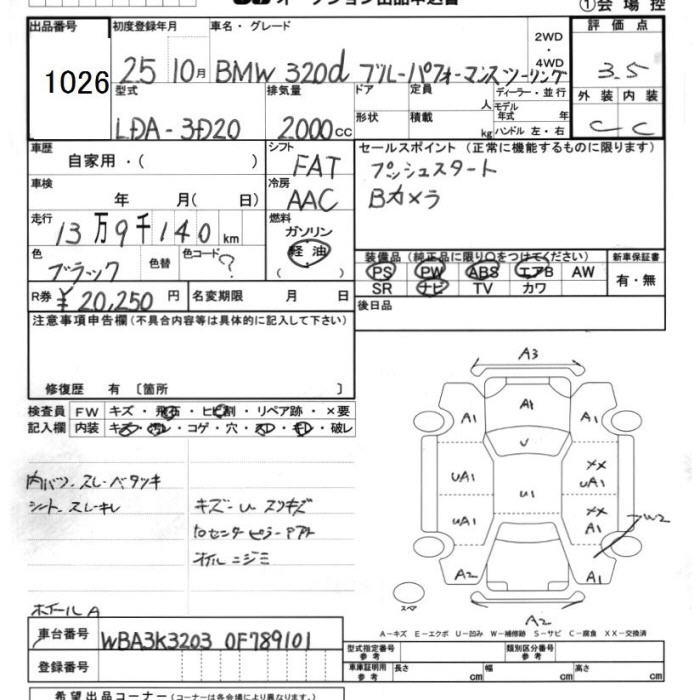 オークション出品申込書
①会場控
出品番号 1026
初度登録年月 25 10月
車名・グレード BMW 320d ブルーパフォーマンスツーリング
2WD・4WD
評価点 3.5
外装 内装
C C
型式 LDA-3D20
排気量 2000cc
ドア 形状
定員 人
積載 kg
ディーラー・並行
モデル年式 年
ハンドル 左・右
車歴 自家用・( )
シフト FAT
冷房 AAC
セールスポイント (正常に機能するものに限ります)
プッシュスタート
Bカメラ
車検 年 月( 日)
走行 13万9千140km
燃料 ガソリン 軽油 ( )
色 ブラック 色替 色コード ?
装備品 (純正品に限り○をつけてください)
PS PW ABS エアB AW
SR ナビ TV カワ
新車保証書 有・無
R券 ¥20,250円 名変期限 月 日
後日品
注意事項申告欄 (不具合内容等は具体的に記入して下さい)
修復歴 有 〔箇所 〕
検査員記入欄
FW キズ・飛石・ヒビ割・リペア跡・×要
内装 キズ・汚レ・コゲ・穴・スレ・キレ・破レ
内バリ スレ・ベタツキ
シート スレ・キレ
キズ・U スリキズ
オイルニジミ
ホイールA
A3
A1 A1 A1
U
UA1 U1 XX UA1
UA1 XX A1
W2
A2 A1
A2
スペア
A-キズ E-エクボ U-凹み W-補修跡 S-サビ C-腐食 XX-交換済
車台番号 WBA3K3203 0F789101
登録番号
型式指定番号 参考
類別区分番号 参考
車庫証明用 参考 長さ cm 幅 cm 高さ cm
希望出品コーナー (コーナーは各会場により異なります。)